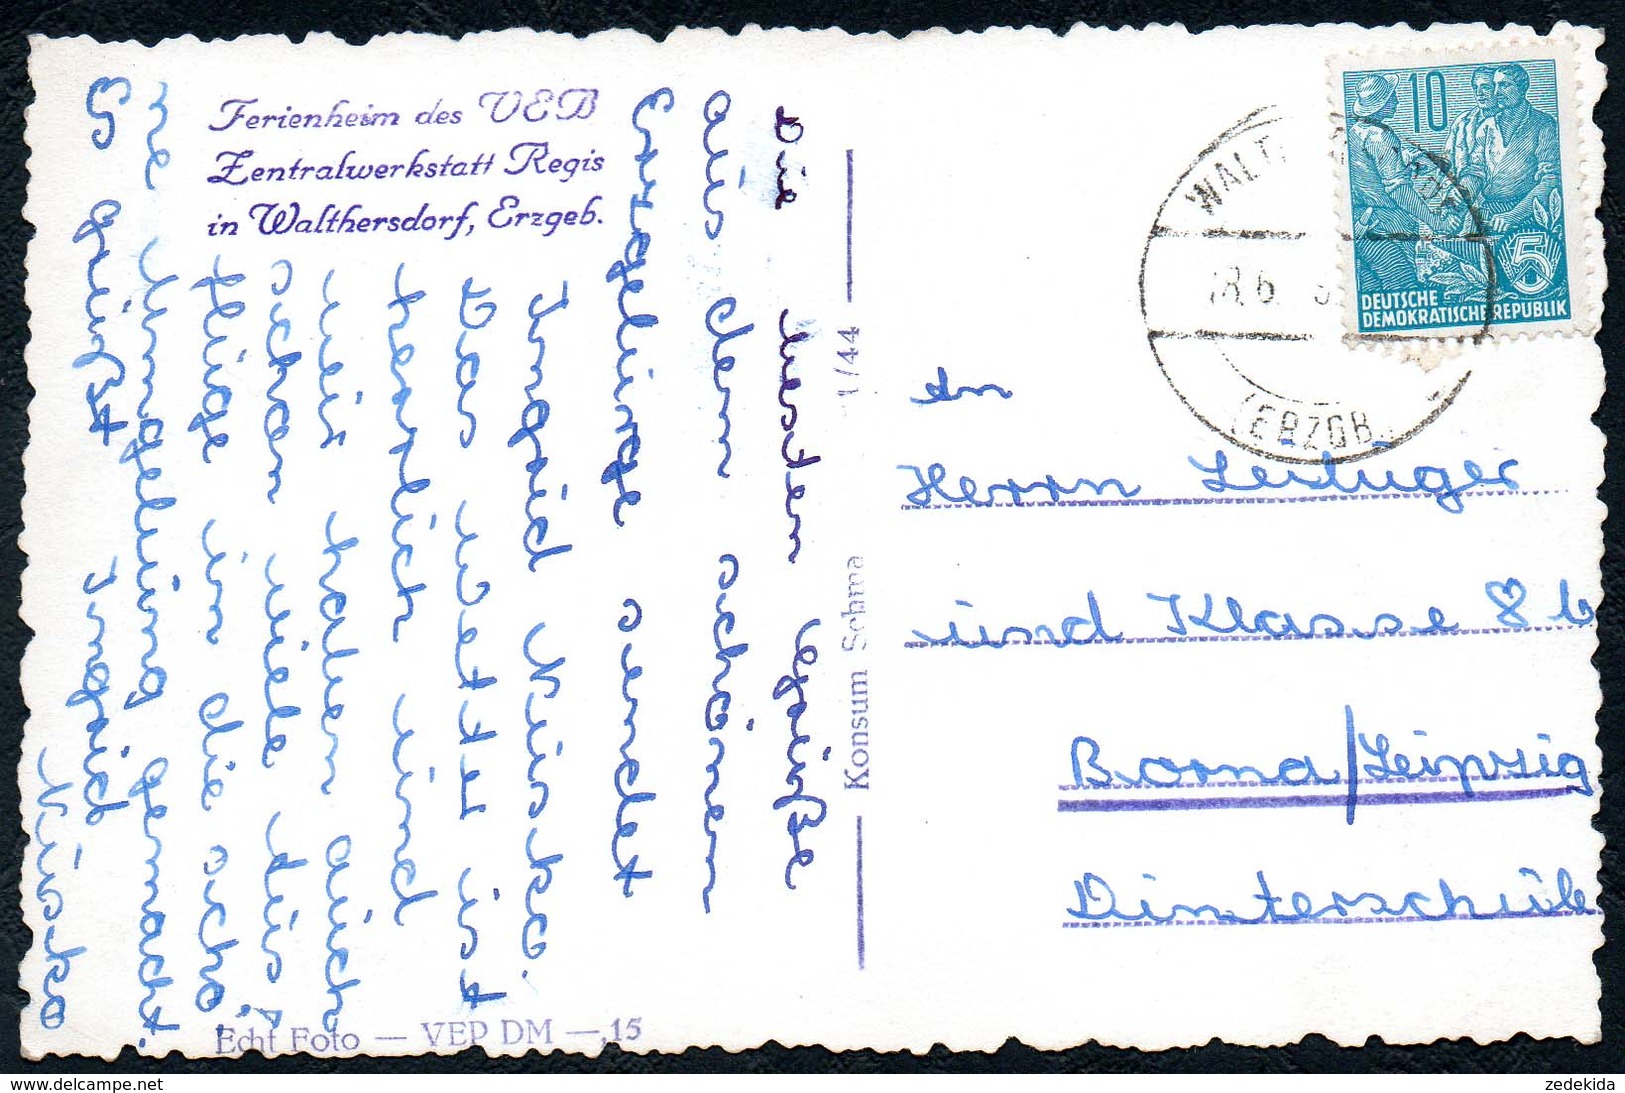 Ferienheim des VEB
Zentralwerkstatt Regis
in Walthersdorf, Erzgeb.
Die besten Grüße
aus dem schönen
Erzgebirge sendet
Ingrid Nuska.
Das Wetter ist
herrlich und
wir haben auch
schon viele Aus-
flüge in die schö-
ne Umgebung gemacht.
Es grüßt Ingrid
Nuska
Echt Foto — VEP DM —,15
Konsum Sehma 1/44
10
5
DEUTSCHE
DEMOKRATISCHE REPUBLIK
WALT
18.6.
(ERZGB.)
An
Herrn
und Klasse 8b
Borna/Leipzig
Dinterschule
delcampe.net
zedekida